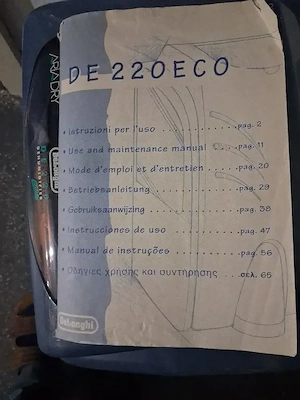 DE 220ECO
• Istruzioni per l'uso ............pag. 2
• Use and maintenance manual ....pag. 11
• Mode d'emploi et d'entretien ....pag. 20
• Betriebsanleitung ..............pag. 29
• Gebruiksaanwijzing .............pag. 38
• Instrucciones de uso ...........pag. 47
• Manual de instruções ...........pag. 56
• Οδηγίες χρήσης και συντήρησης ...σελ. 65
DeLonghi
ARIADRY